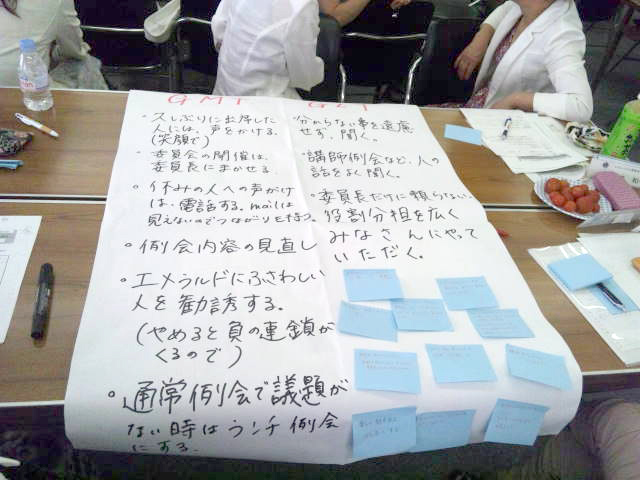 GMT
・久しぶりに出席した
人には、声をかける。
(笑顔で)
・委員会の開催は、
委員長にまかせる。
・休みの人への声かけ
は、電話する。mailは
見えないのでつながりを持つ。
・例会内容の見直し
・エメラルドにふさわしい
人を勧誘する。
(やめると負の連鎖が
くるので)
・通常例会で議題が
ない時はランチ例会
にする。
GLT
・分からない事を遠慮
せず、聞く。
・講師例会など、人の
話をよく聞く。
・委員長だけに頼らない。
役割分担を広く
みなさんにやって
いただく。